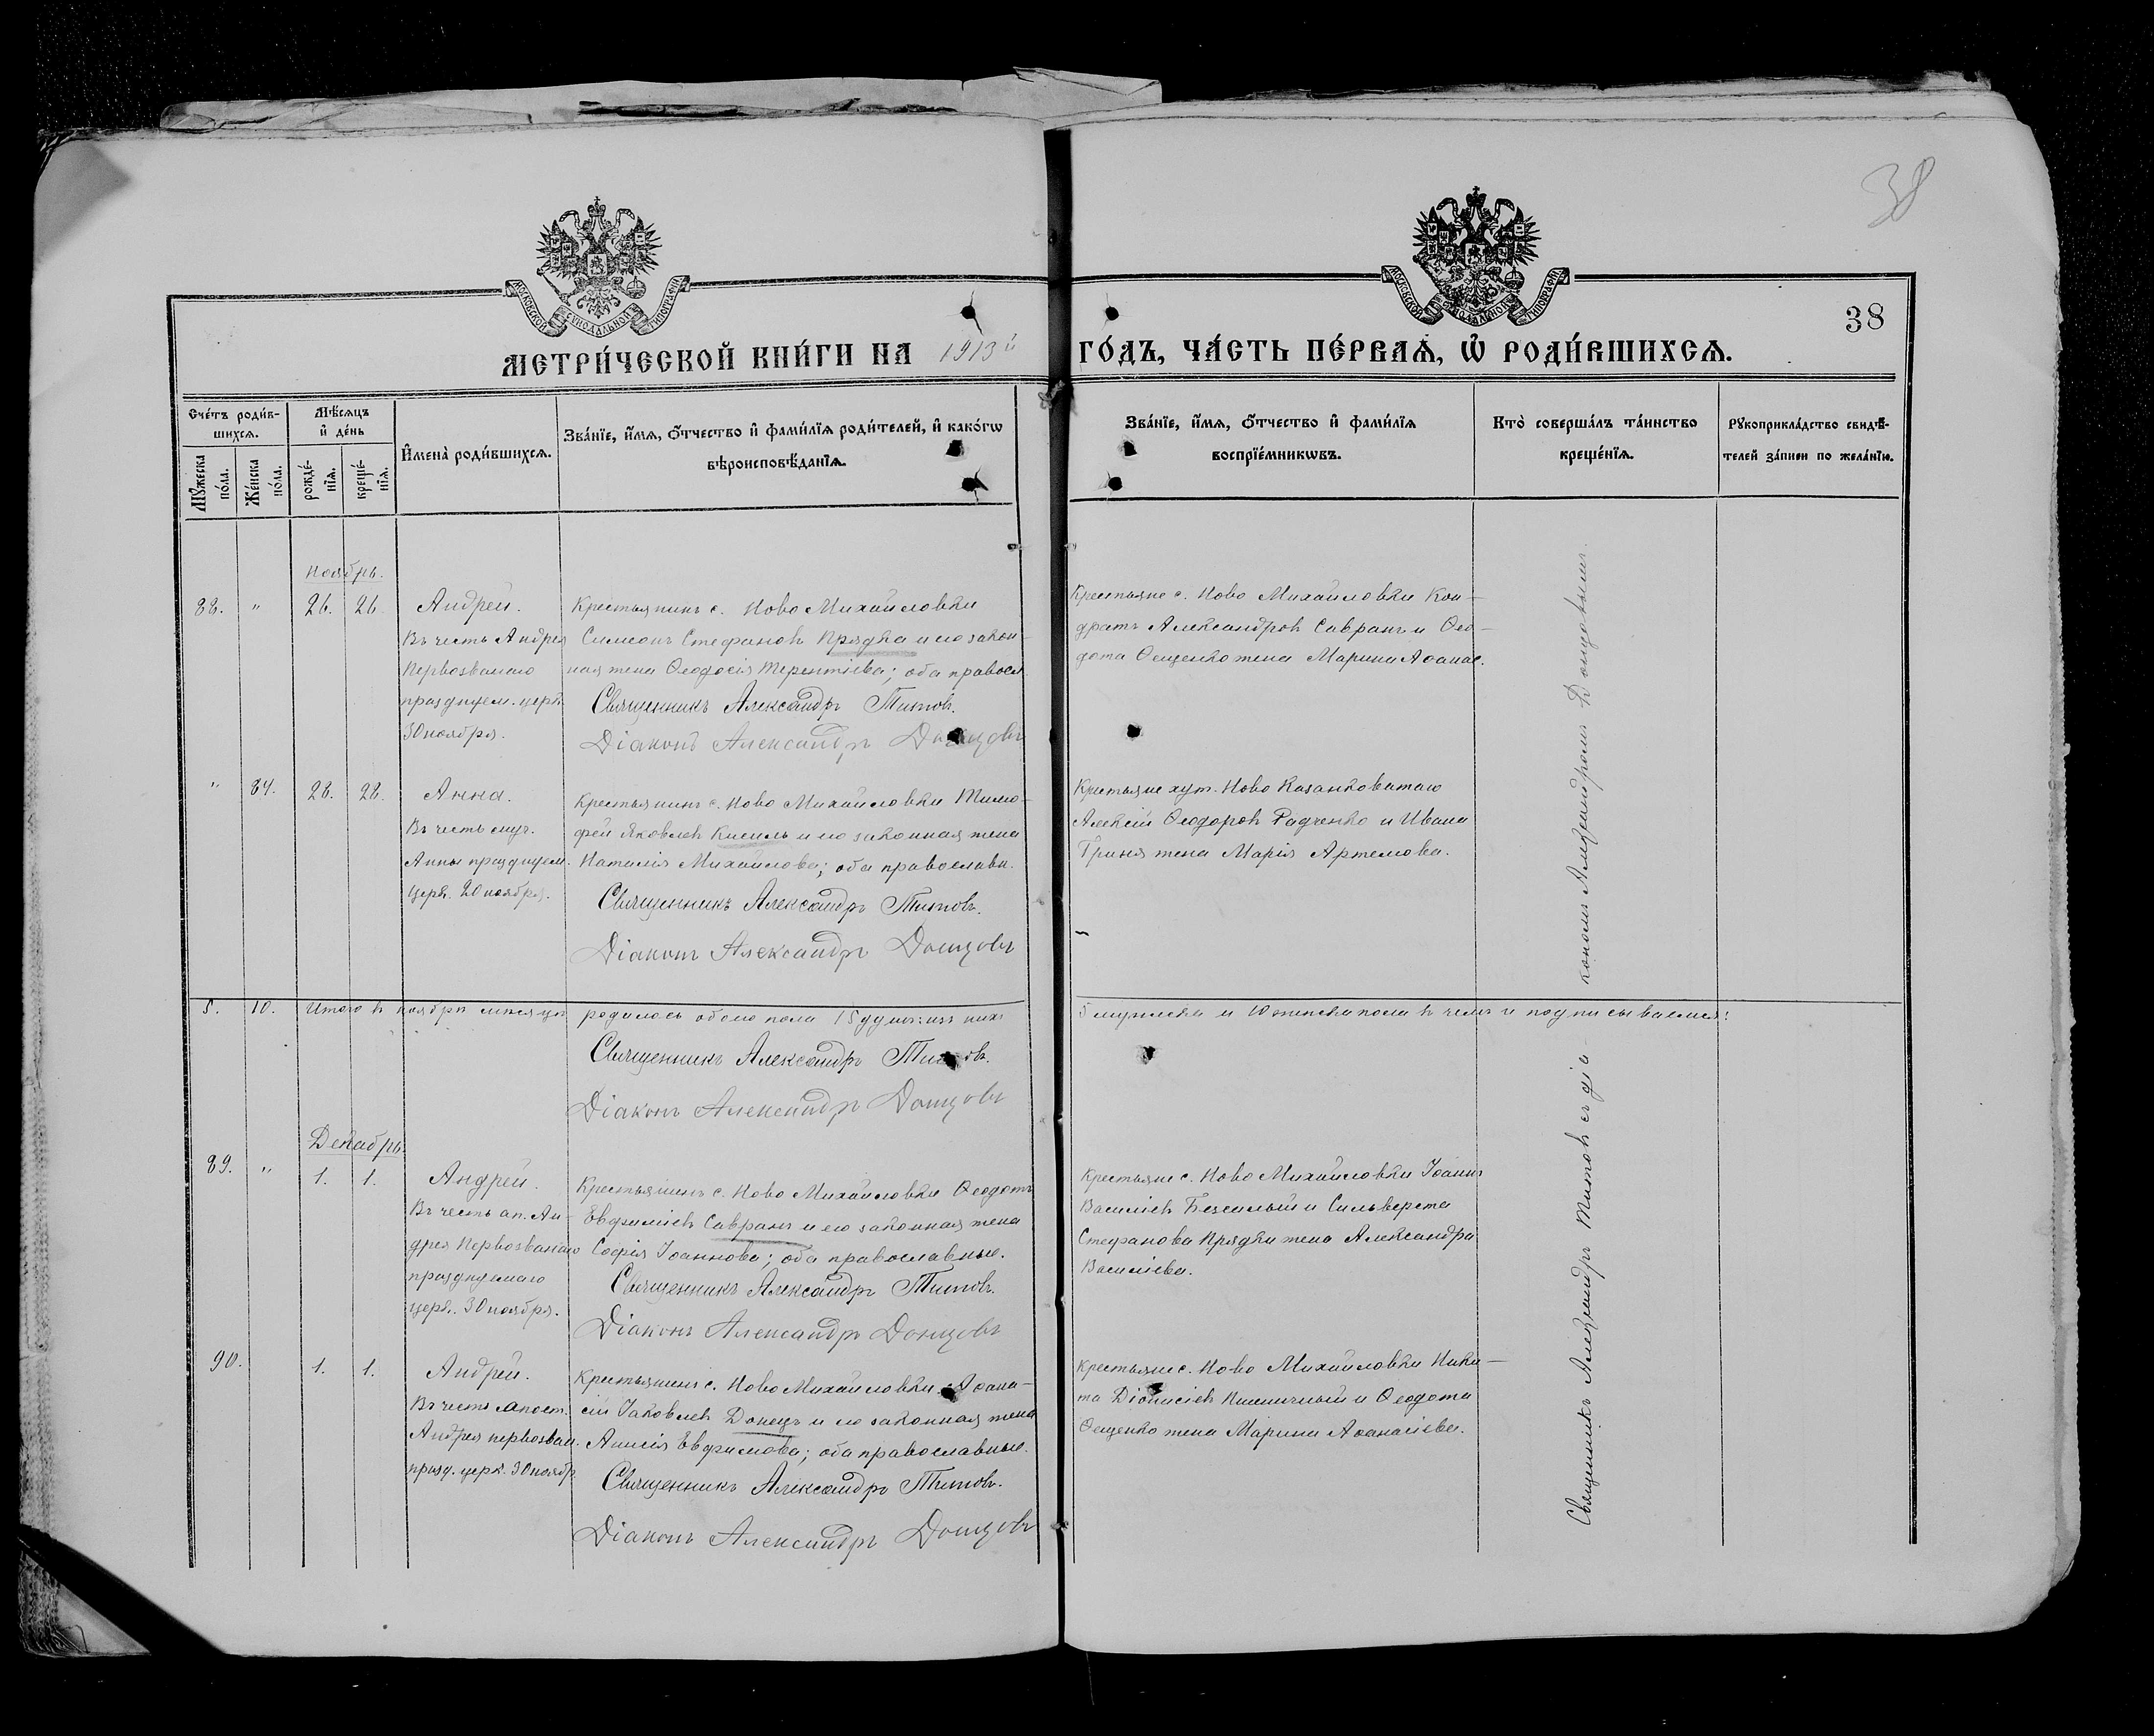 38
МОСКОВСКОЙ СУНОДАЛЬНОЙ ТИПОГРАФІИ
МОСКОВСКОЙ СУНОДАЛЬНОЙ ТИПОГРАФІИ
38
МЕТРИ́ЧЕСКОЙ КНИ́ГИ НА 1913й ГО́ДЪ, ЧА́СТЬ ПЕ́РВАѦ, Ѡ҆ РОДИ́ВШИХСѦ.
Сче́тъ роди́в-
шихсѧ.
Мꙋ́жеска по́ла.
Же́нска по́ла.
Мѣ́сѧцъ
и҆ де́нь
рожде́-
нїѧ.
креще́-
нїѧ.
И҆мена̀ роди́вшихсѧ.
Зва́нїе, и҆́мѧ, ѻ҆́тчество и҆ фами́лїѧ роди́телей, и҆ како́гѡ
вѣроисповѣ́данїѧ.
Зва́нїе, и҆́мѧ, ѻ҆́тчество и҆ фами́лїѧ
воспрїе́мникѡвъ.
Кто̀ соверша́лъ та́инство
креще́нїѧ.
Рꙋкоприкла́дство свидѣ́-
телей за́писи по жела́нїю.
Ноябрь.
88. " 26. 26. Андрей.
Въ честь Андрея
Первозваннаго
празднуем. церк.
30 ноября.
Крестьянинъ с. Ново Михайловки
Симеонъ Стефановъ Прядка и его закон-
ная жена Ѳеодосія Терентіева; оба правосл.
Священникъ Александръ Титовъ.
Діаконъ Александръ Донцовъ
Крестьяне с. Ново Михайловки Кон-
дратъ Александровъ Савранъ и Ѳео-
дота Ѳещенко жена Марина Аѳанас.
" 84. 28. 28. Анна.
Въ честь муч.
Анны празднуем.
церк. 20 ноября.
Крестьянинъ с. Ново Михайловки Тимо-
фей Яковлевъ Кисиль и его законная жена
Наталія Михайлова; оба православн.
Священникъ Александръ Титовъ.
Діаконъ Александръ Донцовъ
Крестьяне хут. Ново Казанковатаго
Алексій Ѳеодоровъ Радченко и Ивана
Гриня жена Марія Артемова.
5. 10. Итого въ ноябрѣ мѣсяцѣ родилось обоего пола 15 душъ: изъ нихъ 5 мужеска и 10 женска пола въ чемъ и подписываемся:
Священникъ Александръ Титовъ.
Діаконъ Александръ Донцовъ
Декабрь.
89. " 1. 1. Андрей.
Въ честь ап. Ан-
дрея Первозваннаго
празднуемаго
церк. 30 ноября.
Крестьянинъ с. Ново Михайловки Ѳеодотъ
Евфиміевъ Савранъ и его законная жена
Софія Іоаннова; оба православные.
Священникъ Александръ Титовъ.
Діаконъ Александръ Донцовъ
Крестьяне с. Ново Михайловки Іоаннъ
Василіевъ Безсилый и Сильверста
Стефанова Прядки жена Александра
Василіева.
90. 1. 1. Андрей.
Въ честь апост.
Андрея первозван.
празд. церк. 30 ноябр.
Крестьянинъ с. Ново Михайловки Аѳана-
сій Іаковлевъ Донецъ и его законная жена
Анисія Евфимова; оба православные.
Священникъ Александръ Титовъ.
Діаконъ Александръ Донцовъ
Крестьяне с. Ново Михайловки Ники-
та Діонисіевъ Пшеничный и Ѳеодота
Ѳещенко жена Марина Аѳанасіева.
Священникъ Александръ Титовъ съ діа-кономъ Александромъ Донцовымъ.